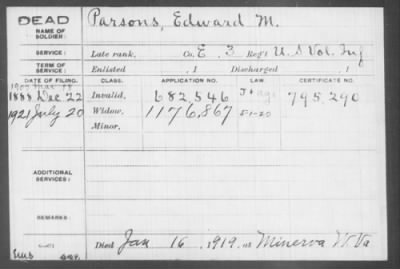 DEAD
NAME OF SOLDIER:
Parsons, Edward M.
SERVICE:
Late rank, Co. E, 3 Reg't U.S. Vol. Inf
TERM OF SERVICE:
Enlisted , 1 Discharged , 1
DATE OF FILING. CLASS. APPLICATION NO. LAW. CERTIFICATE NO.
1888 Dec 22 Invalid, 682,546 795,290
1921 July 20 Widow, 1176,867 5-1-20
Minor,
ADDITIONAL SERVICES:
REMARKS:
Died Jan 16, 1919, at Minerva W.Va